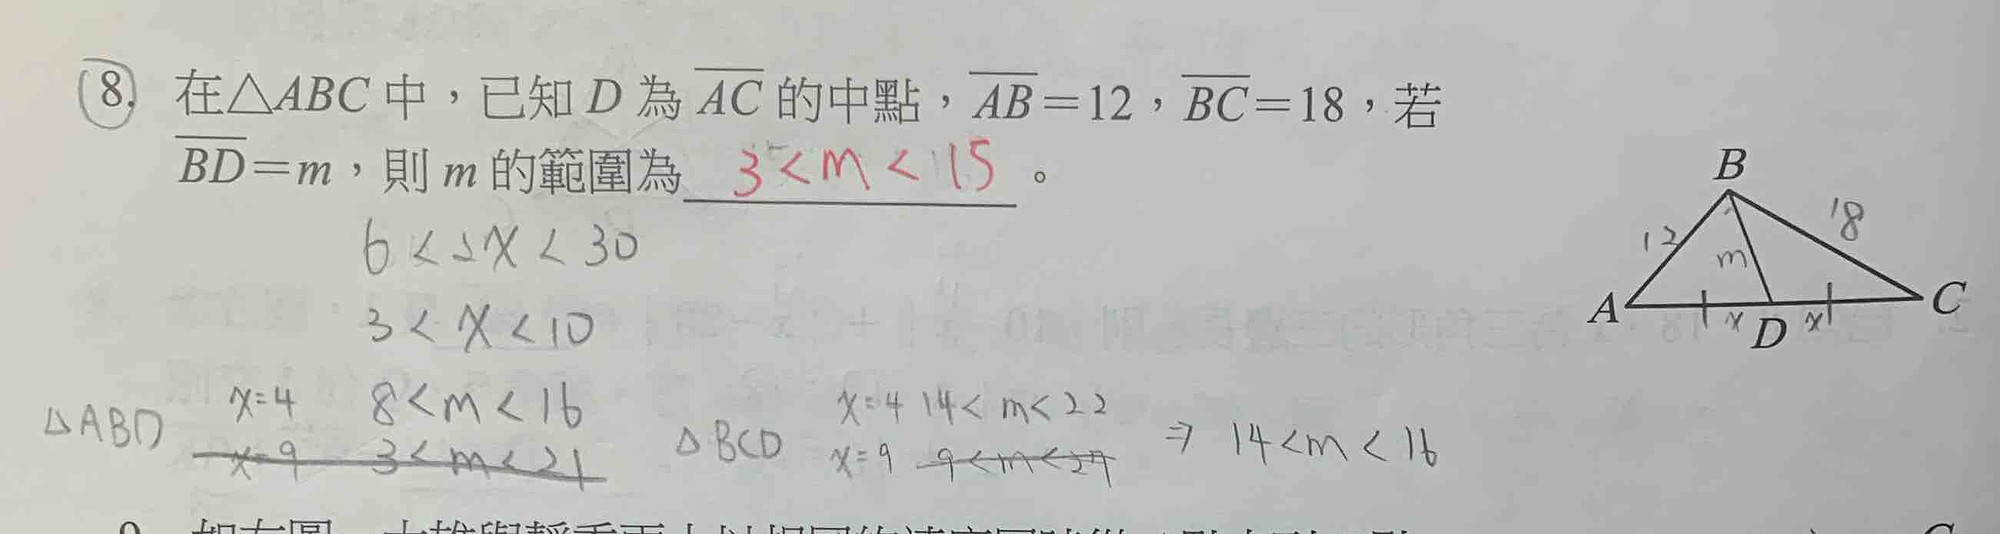 8. 在△ABC 中，已知 D 為 AC 的中點，AB=12，BC=18，若
BD=m，則 m 的範圍為 3<m<15。
6<2x<30
3<x<10
△ABD x=4 8<m<16
x=9 3<m<21
△BCD x=4 14<m<22
x=9 9<m<27
⇒ 14<m<16
B
12
18
m
A
x
D
x
C